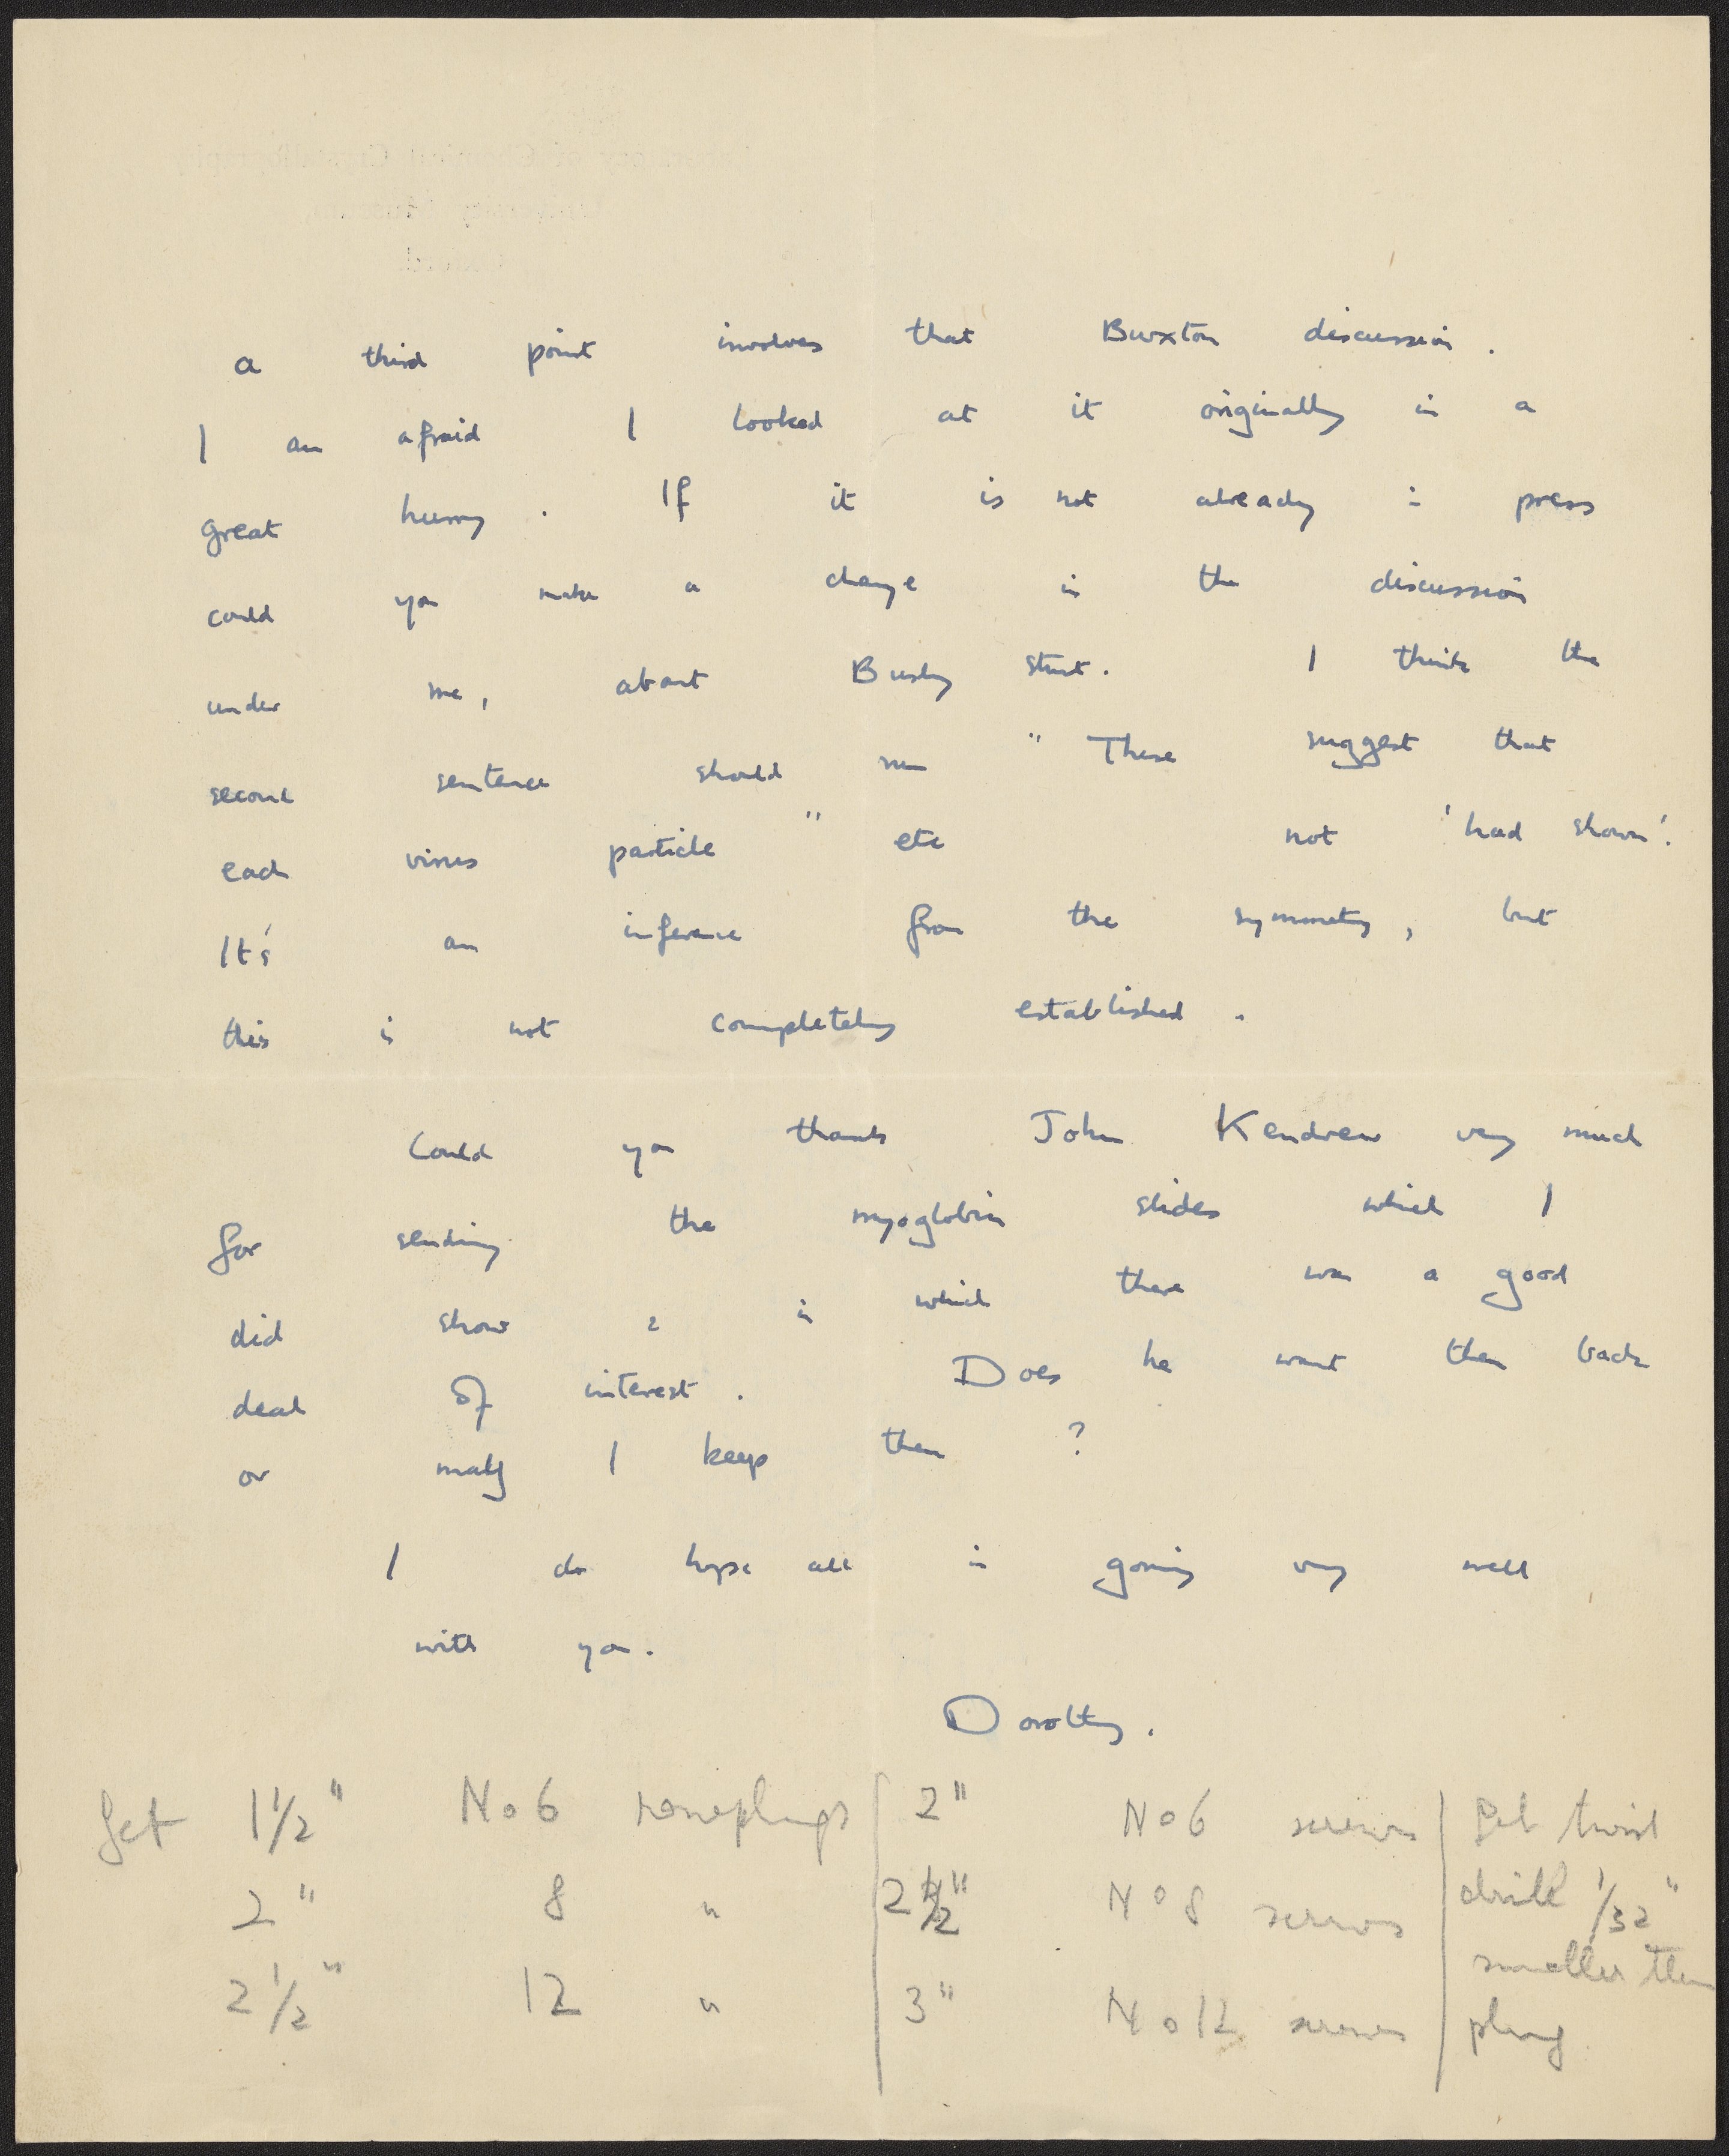 a third point involves that Buxton discussion.
I am afraid I looked at it originally in a
great hurry. If it is not already in press
could you make a change in the discussion
under me, about Bushy stunt. I think the
second sentence should run "These suggest that
each virus particle" etc not 'had shown'.
It's an inference from the symmetry, but
this is not completely established.
Could you thank John Kendrew very much
for sending the myoglobin slides which I
did show & in which there was a good
deal of interest. Does he want them back
or may I keep them?
I do hope all is going very well
with you.
Dorothy.
Get 1 1/2" No 6 | 2" No 6 screws | Get twist
2" 8 " | 2 1/2" No 8 screws | drill 1/32"
smaller than
2 1/2" 12 " | 3" No 12 screws | plug